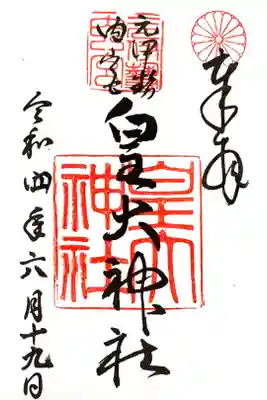 奉拝
元伊勢
内宮
皇大神社
令和四年六月十九日
皇大
神社